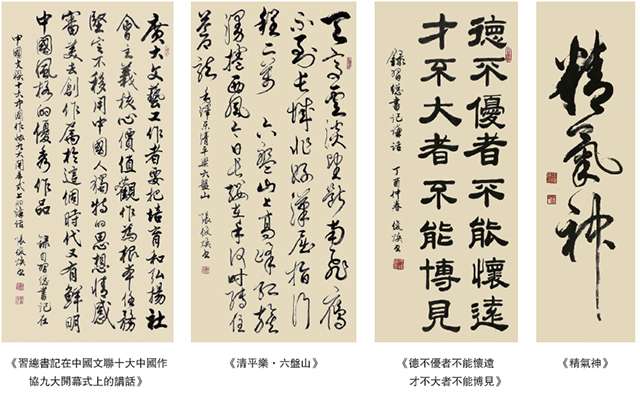 廣大文藝工作者要把培育和弘揚社
會主義核心價值觀作為根本任務
堅定不移用中國人獨特的思想情感
審美去創作屬於這個時代又有鮮明
中國風格的優秀作品 録自習總書記在
中國文聯十大中國作協九大開幕式上的講話 張俊煥書
天高雲淡望斷南飛鴈
不到長城非好漢屈指行
程二萬 六盤山上高峰紅旗
漫捲西風今日長纓在手何時縛住
蒼龍 毛澤東清平樂六盤山 張俊煥書
德不優者不能懷遠
才不大者不能博見
録習總書記講話 丁酉仲春 俊煥書
精氣神
《習總書記在中國文聯十大中國作
協九大開幕式上的講話》
《清平樂·六盤山》
《德不優者不能懷遠
才不大者不能博見》
《精氣神》